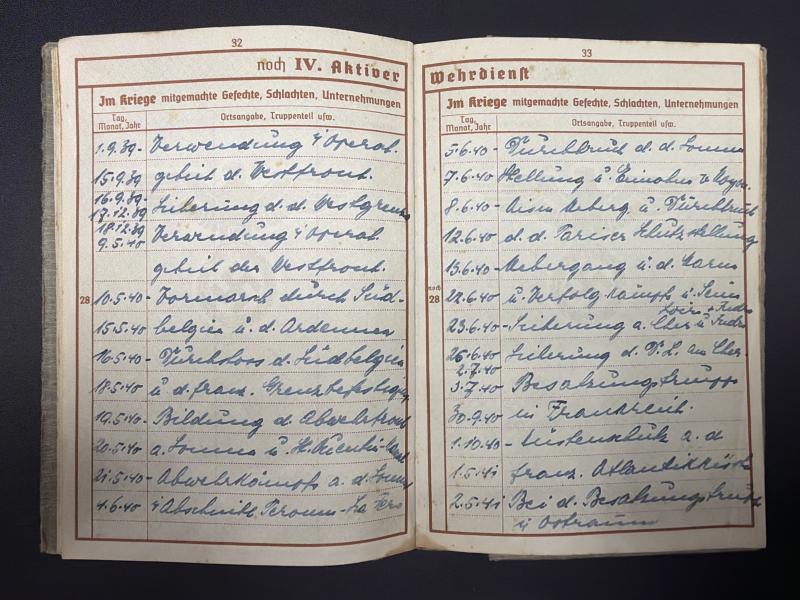 32
noch IV. Aktiver
Im Kriege mitgemachte Gefechte, Schlachten, Unternehmungen
Tag, Monat, Jahr
Ortsangabe, Truppenteil usw.
1.9.39- Verwendung i/ Operat.
15.9.39 gebiet d. Westfront.
16.9.39-
17.12.39 Sicherung d. d. Westgrenze
18.12.39 Verwendung i/ Operat.
9.5.40
gebiet der Westfront.
28
10.5.40- Vormarsch durch Süd-
15.5.40 belgien u. d. Ardennen
16.5.40- Durchstoss d. Südbelgien
18.5.40 u. d. franz. Grenzbefestigung
19.5.40- Bildung d. Abwehrfront
20.5.40 a. Somme u.
21.5.40- Abwehrkämpfe a. d. Somme
4.6.40 i/ Abschnitt Peronne- La Fere
33
Wehrdienst
Im Kriege mitgemachte Gefechte, Schlachten, Unternehmungen
Tag, Monat, Jahr
Ortsangabe, Truppenteil usw.
5.6.40- Durchbruch d. d. Somme
7.6.40 Stellung u. Einnahme v. Noyon
8.6.40- Aisne Ueberg. u. Durchbruch
12.6.40 d. d. Pariser Schutzstellung
13.6.40- Uebergang u. d. Marne
noch 28
22.6.40 u. Verfolg kämpfe u. Seine
Loire + Indre
23.6.40- Sicherung a. Cher u. Indre
25.6.40 Sicherung d. D. L. am Cher.
2.7.40
3.7.40 Besatzungstruppe
30.9.40 in Frankreich.
1.10.40- Küstenschutz a. d
1.5.41 franz. Atlantikküste
2.5.41 Bei d. Besatzungstruppe
in Ostraum